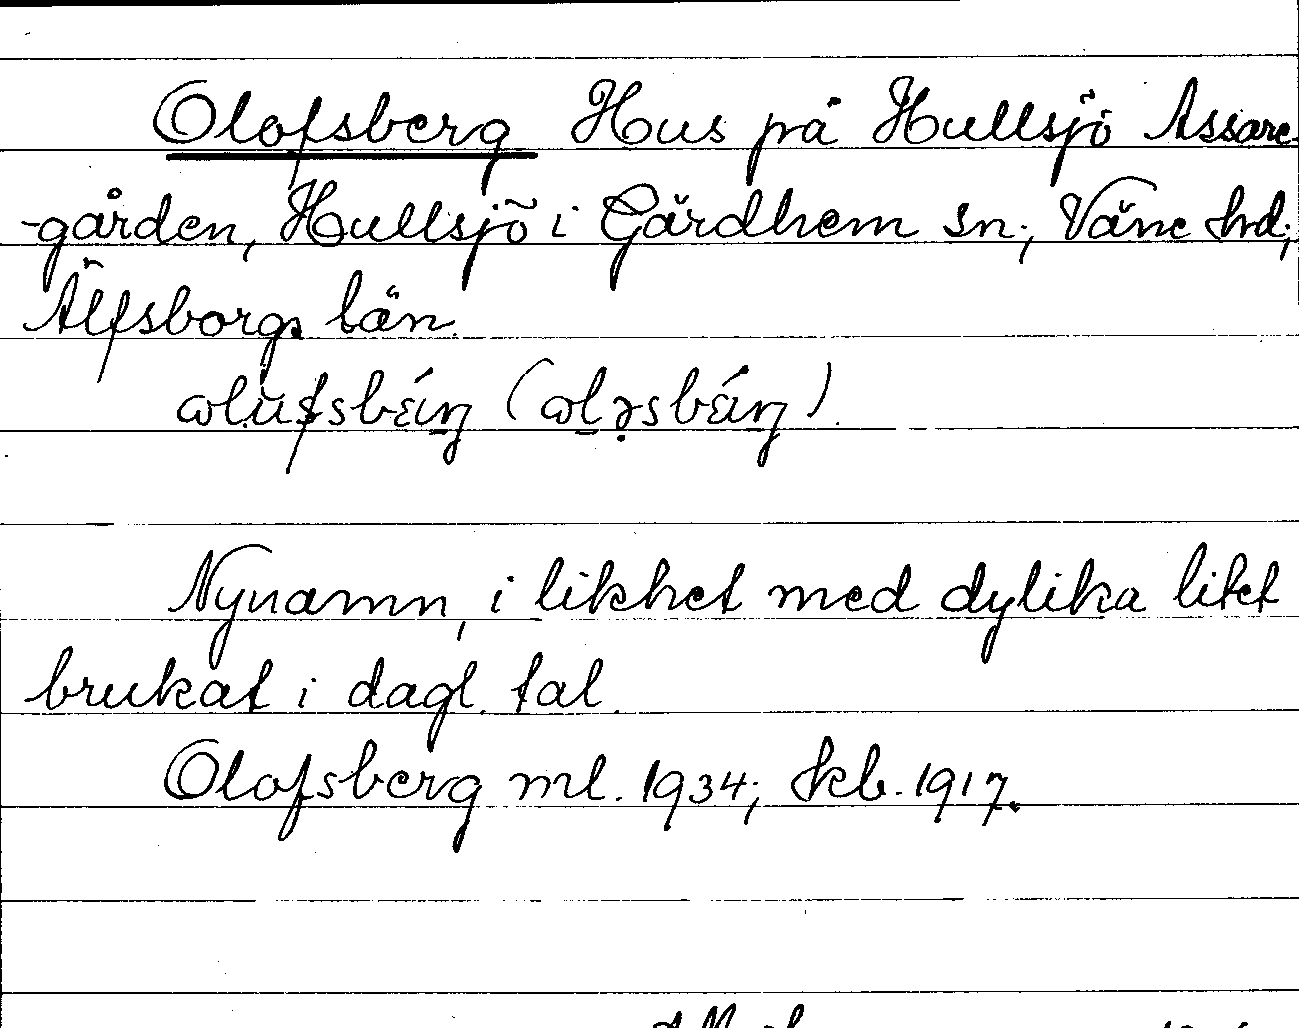 Olofsberg Hus på Hullsjö Assare-
-gården, Hullsjö i Gärdhem sn; Väne hd;
Älfsborgs län.
Nynamn, i likhet med dylika litet
brukat i dagl. tal.
Olofsberg ml. 1934; kb. 1917.